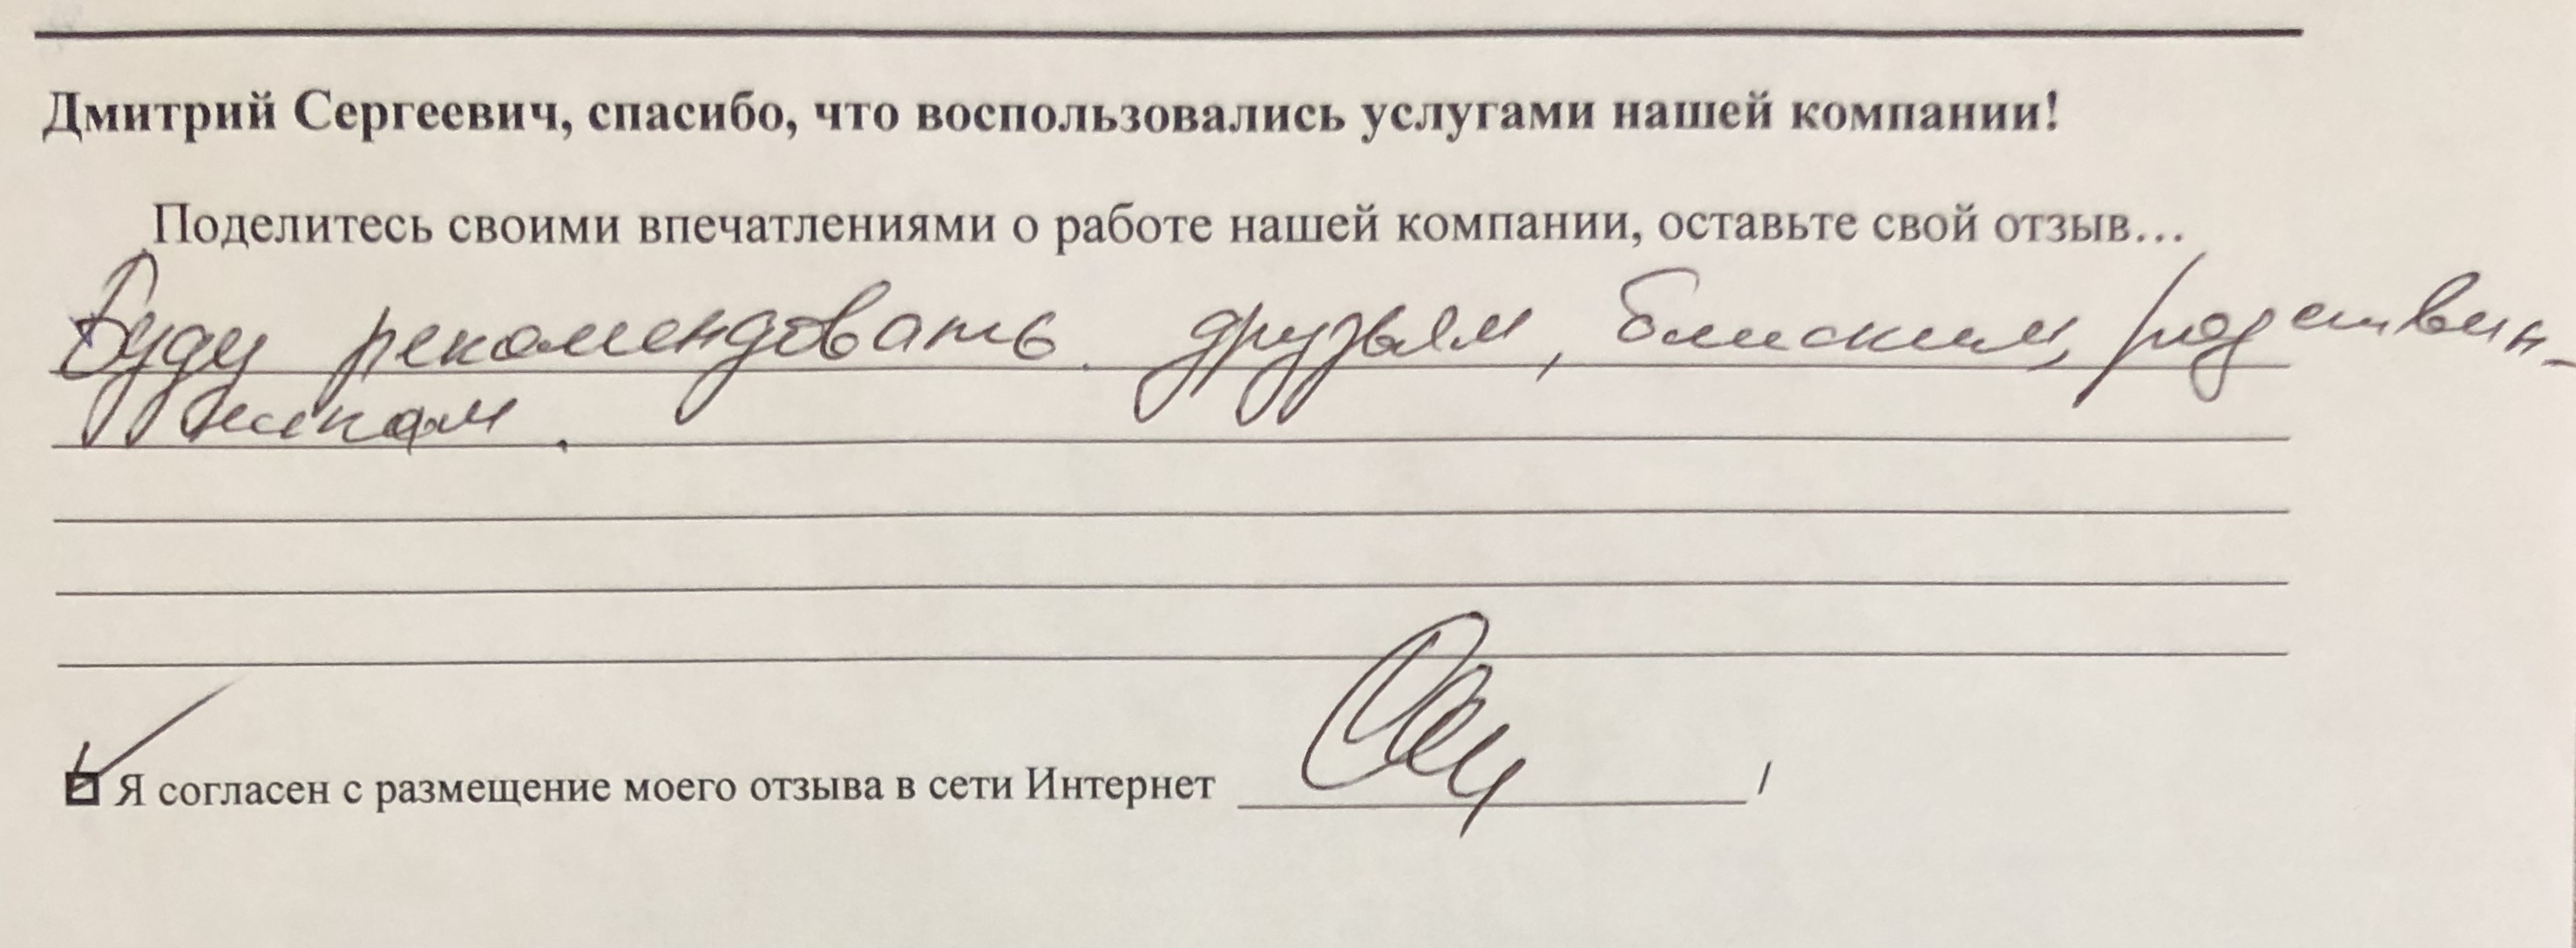 Дмитрий Сергеевич, спасибо, что воспользовались услугами нашей компании!
Поделитесь своими впечатлениями о работе нашей компании, оставьте свой отзыв...
Буду рекомендовать друзьям, близким, родствен-
никам.
Я согласен с размещение моего отзыва в сети Интернет /